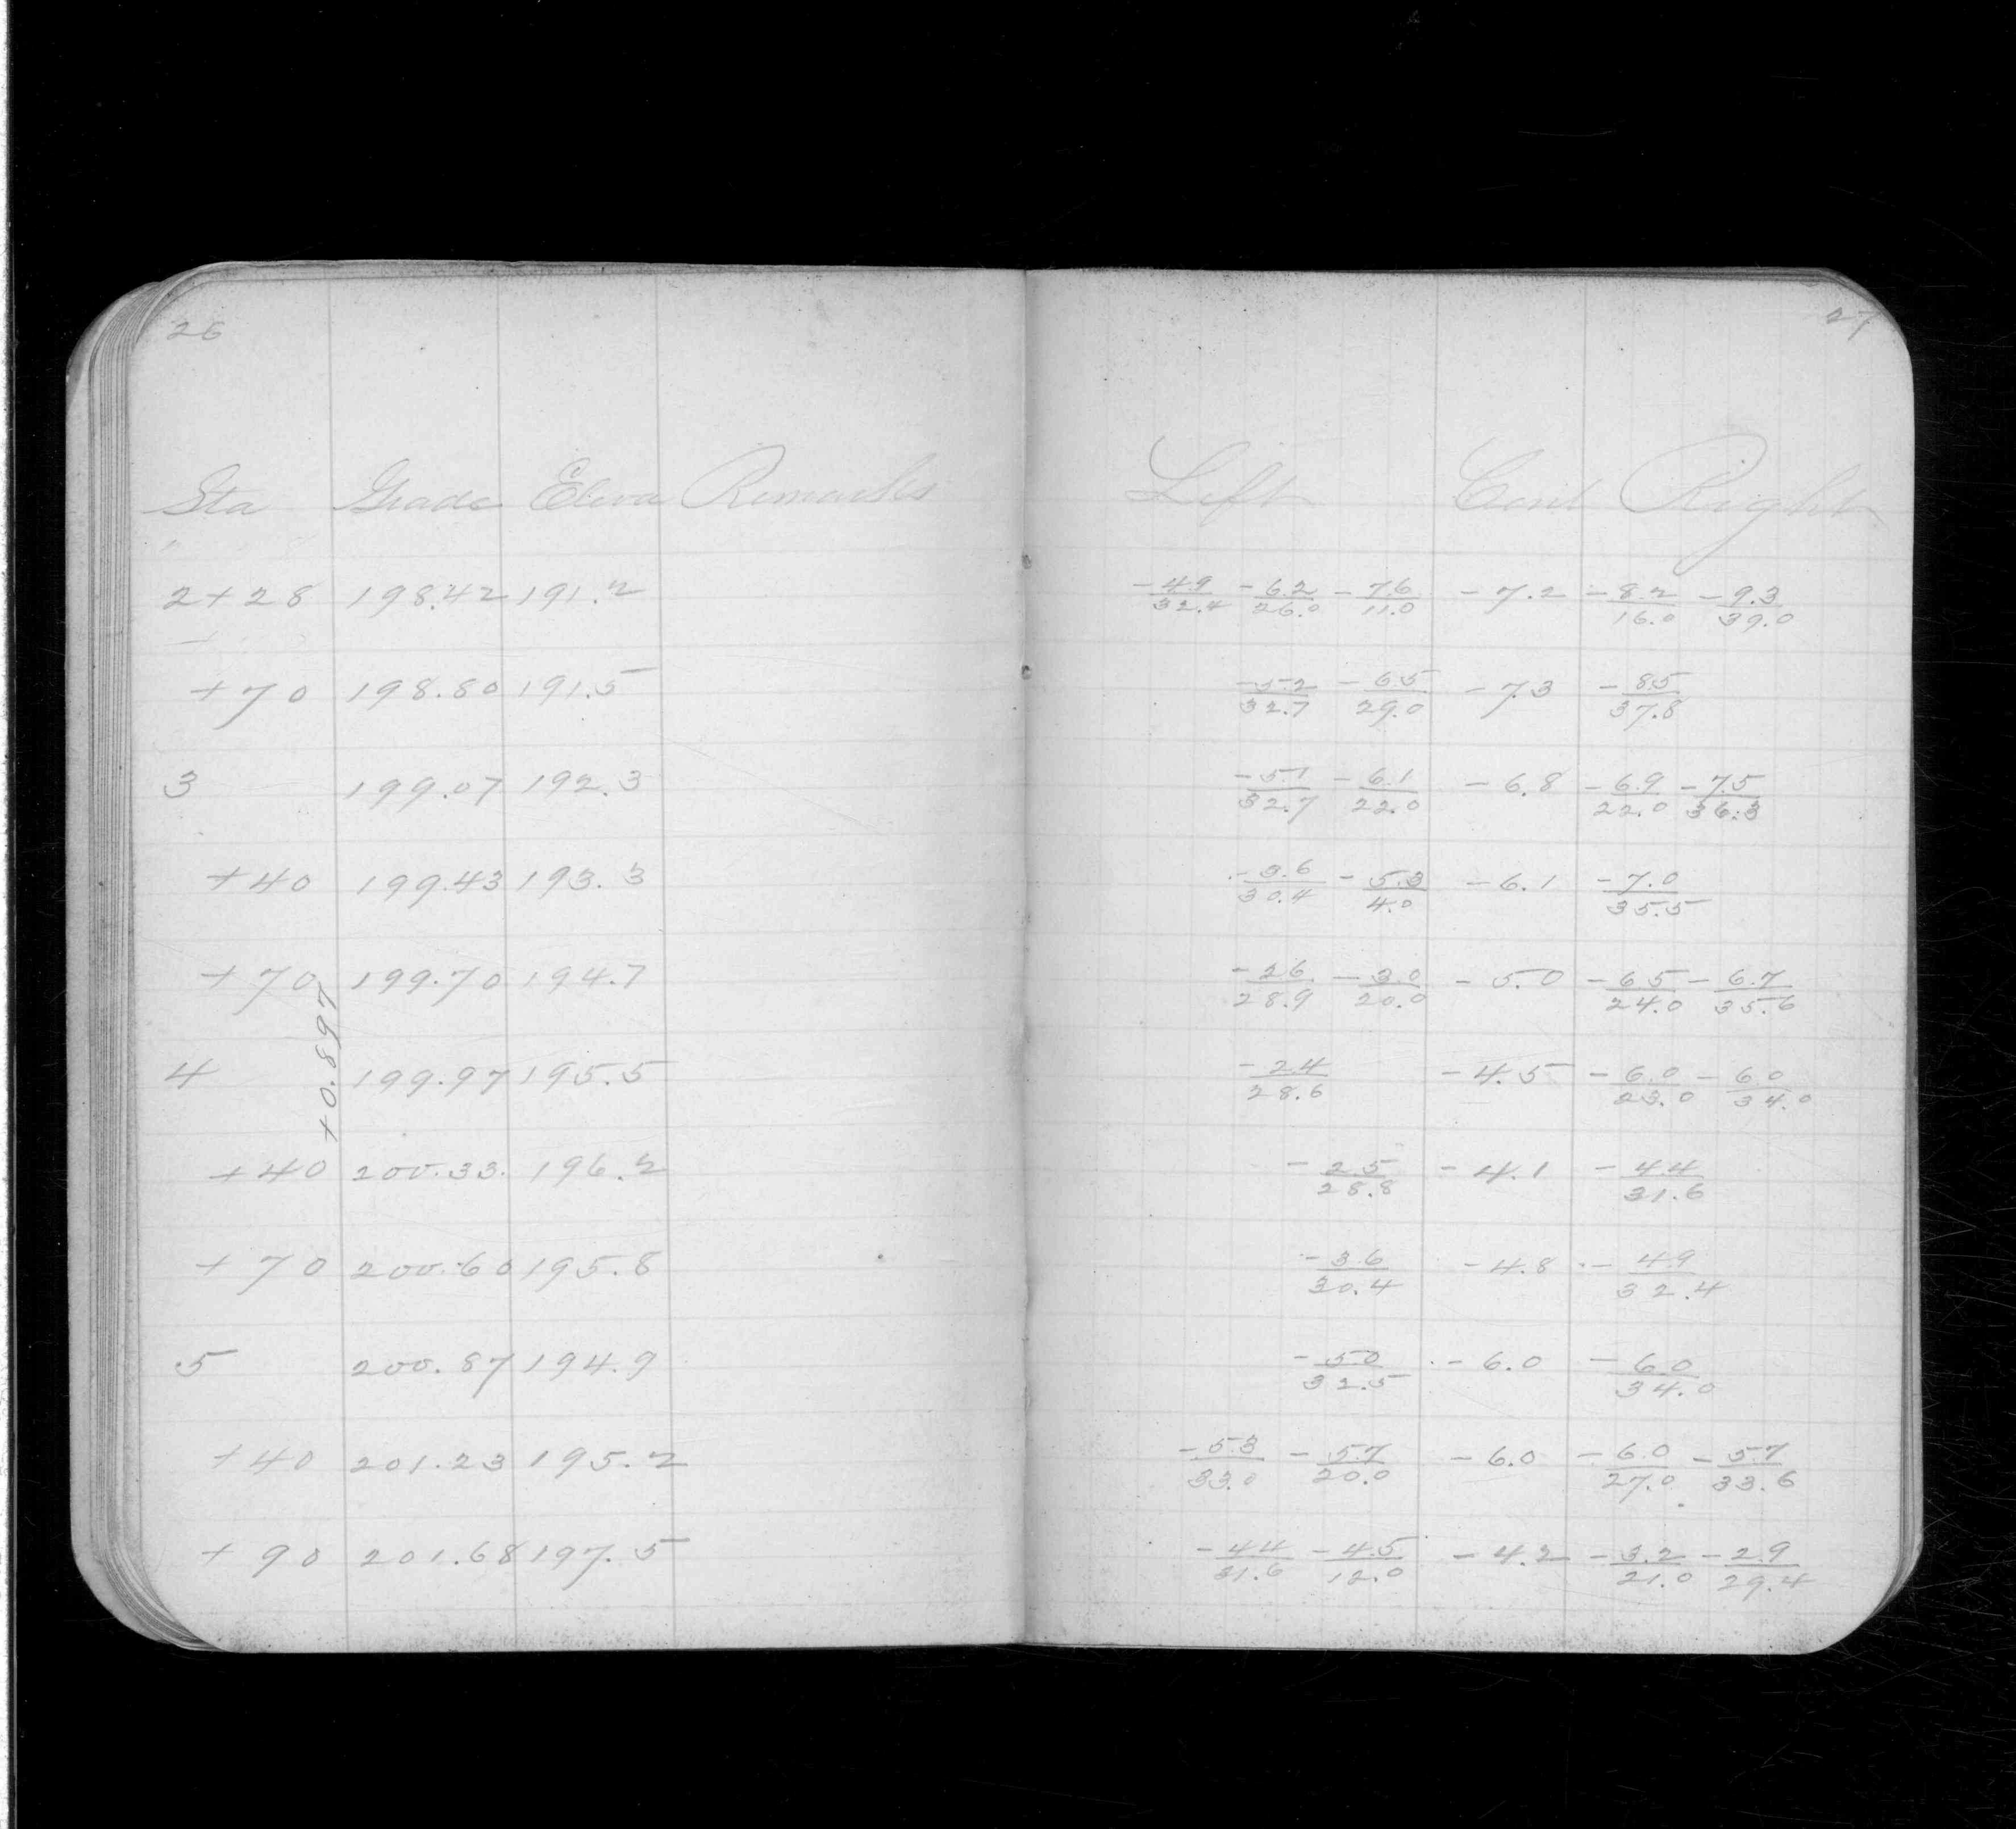 26
27
Sta Grade Eleva Remarks Left Cent Right
2+28 198.42 191.2 -4.9/32.4 -6.2/26.0 -7.6/11.0 -7.2 -8.2/16.0 -9.3/39.0
+70 198.80 191.5 -5.2/32.7 -6.5/29.0 -7.3 -8.5/37.8
3 199.07 192.3 -5.1/32.7 -6.1/22.0 -6.8 -6.9/22.0 -7.5/36.3
+40 199.43 193.3 -3.6/30.4 -5.3/4.0 -6.1 -7.0/35.5
+70 199.70 194.7 -2.6/28.9 -3.0/20.0 -5.0 -6.5/24.0 -6.7/35.6
+0.897
4 199.97 195.5 -2.4/28.6 -4.5 -6.0/23.0 -6.0/34.0
+40 200.33 196.2 -2.5/28.8 -4.1 -4.4/31.6
+70 200.60 195.8 -3.6/30.4 -4.8 -4.9/32.4
5 200.87 194.9 -5.0/32.5 -6.0 -6.0/34.0
+40 201.23 195.2 -5.3/33.0 -5.7/20.0 -6.0 -6.0/27.0 -5.7/33.6
+90 201.68 197.5 -4.4/31.6 -4.5/12.0 -4.2 -3.2/21.0 -2.9/29.4